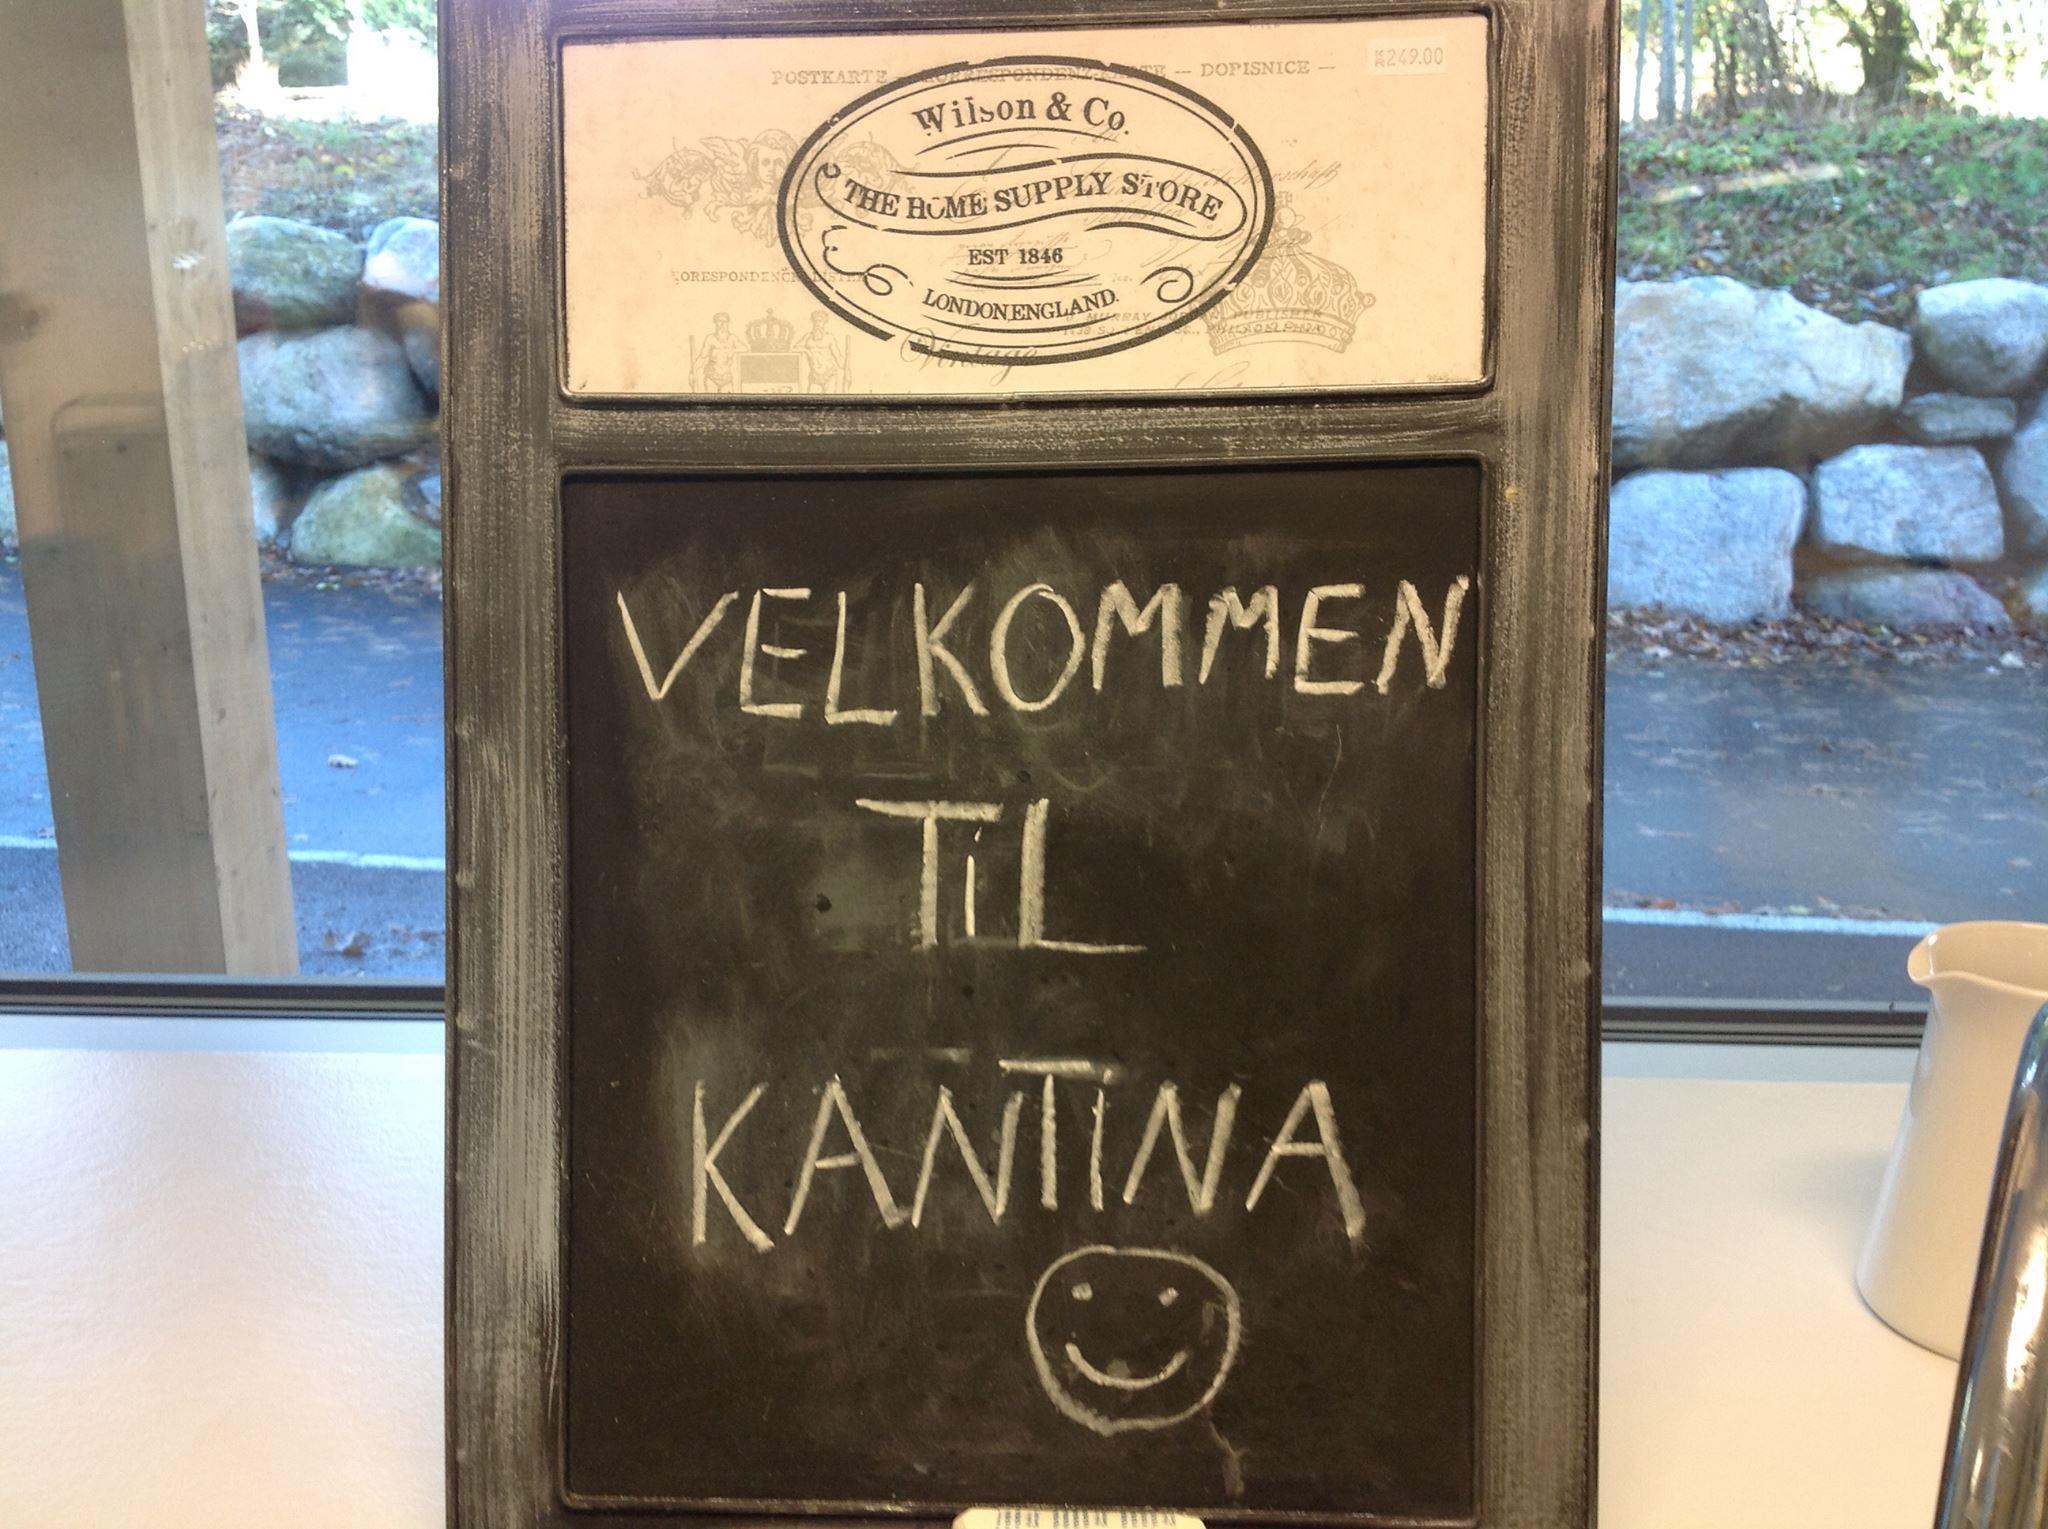 KR249.00
POSTKARTE — CORRESPONDENZ-KARTE — DOPISNICE —
Wilson & Co.
THE HOME SUPPLY STORE
EST 1846
LONDON,ENGLAND.
MURRAY PUBLISHER
PHILADELPHIA
Vintage
VELKOMMEN
TiL
KANTINA